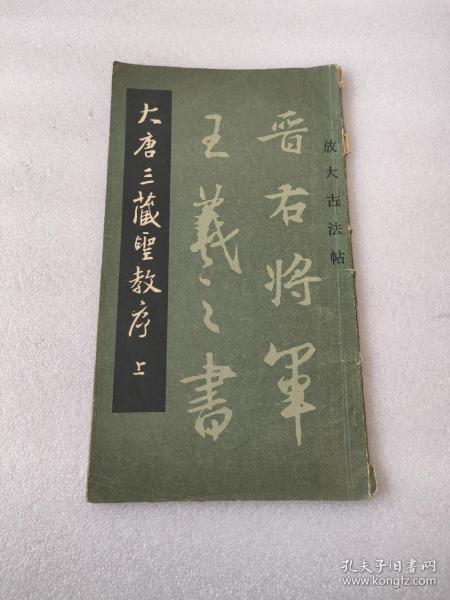 放大古法帖
晋右将軍
王羲之書
大唐三藏聖教序 上
孔夫子旧书网
www.kongfz.com